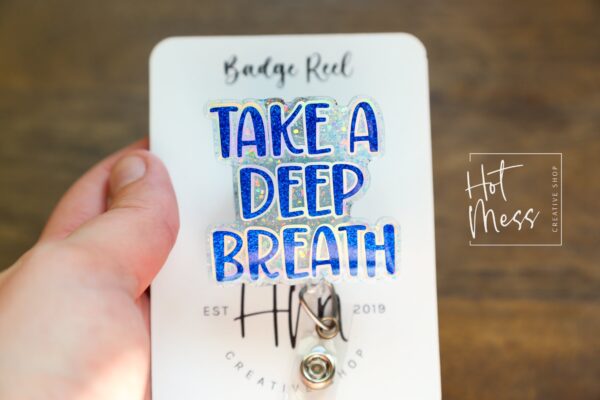 Badge Reel
TAKE A
DEEP
BREATH
EST Hm 2019
CREATIVE SHOP
Hot
Mess
CREATIVE SHOP